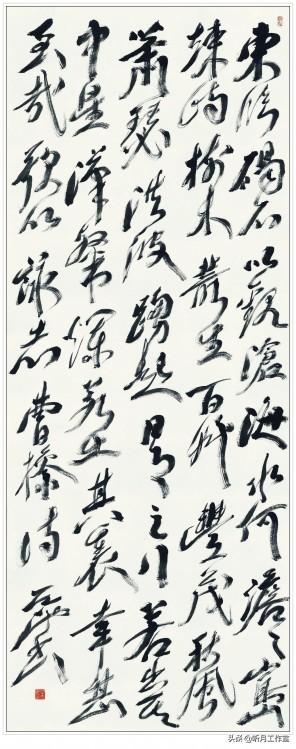 東臨碣石以觀滄海水何澹澹山島
竦峙樹木叢生百草豐茂秋風
蕭瑟洪波踴起日月之行若出其
中星漢粲爛若出其裏幸甚
至哉歌以詠志曹操詩
头条@昕月工作室